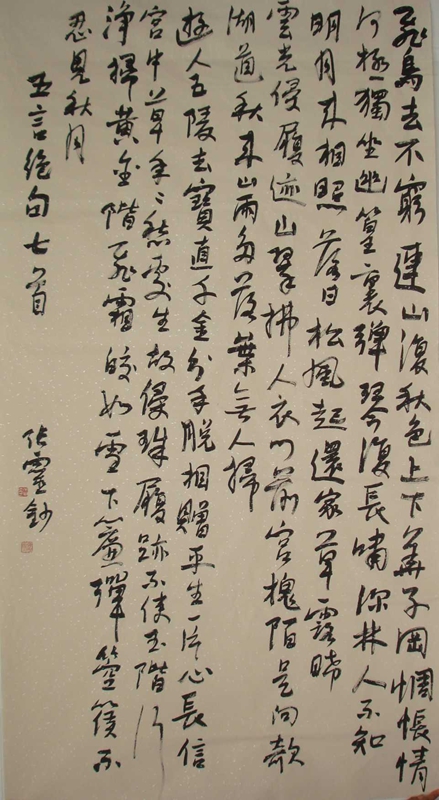 飛鳥去不窮連山復秋色上下華子岡惆悵情
何極獨坐幽篁裏彈琴復長嘯深林人不知
明月來相照落日松風起還家草露晞
雲光侵履迹山翠拂人衣門前宮槐陌是向欹
湖道秋來山雨多落葉無人掃
遊人五陵去寶劍直千金分手脫相贈平生一片心長信
宮中草年年愁處生故侵珠履跡不使玉階行
淨掃黃金階飛霜皎如雪下簾彈箜篌不
忍見秋月
五言絕句七首
靈鈔